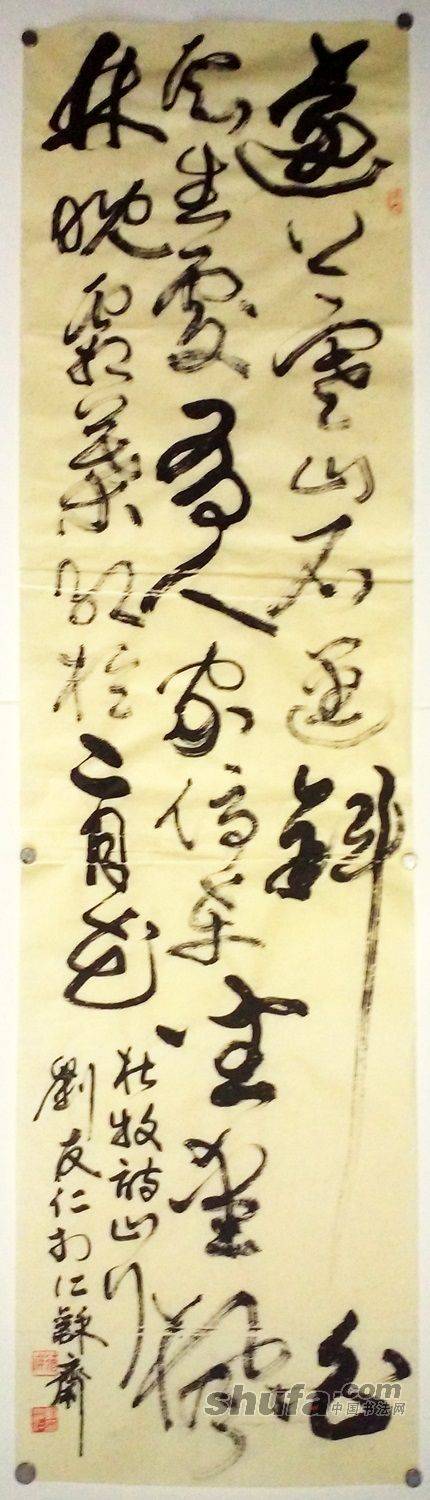 遠上寒山石逕斜白
雲生處有人家停車坐愛楓
林晚霜葉紅於二月花
杜牧詩山行
劉友仁於仁龢齋
shufa.com
中国书法网